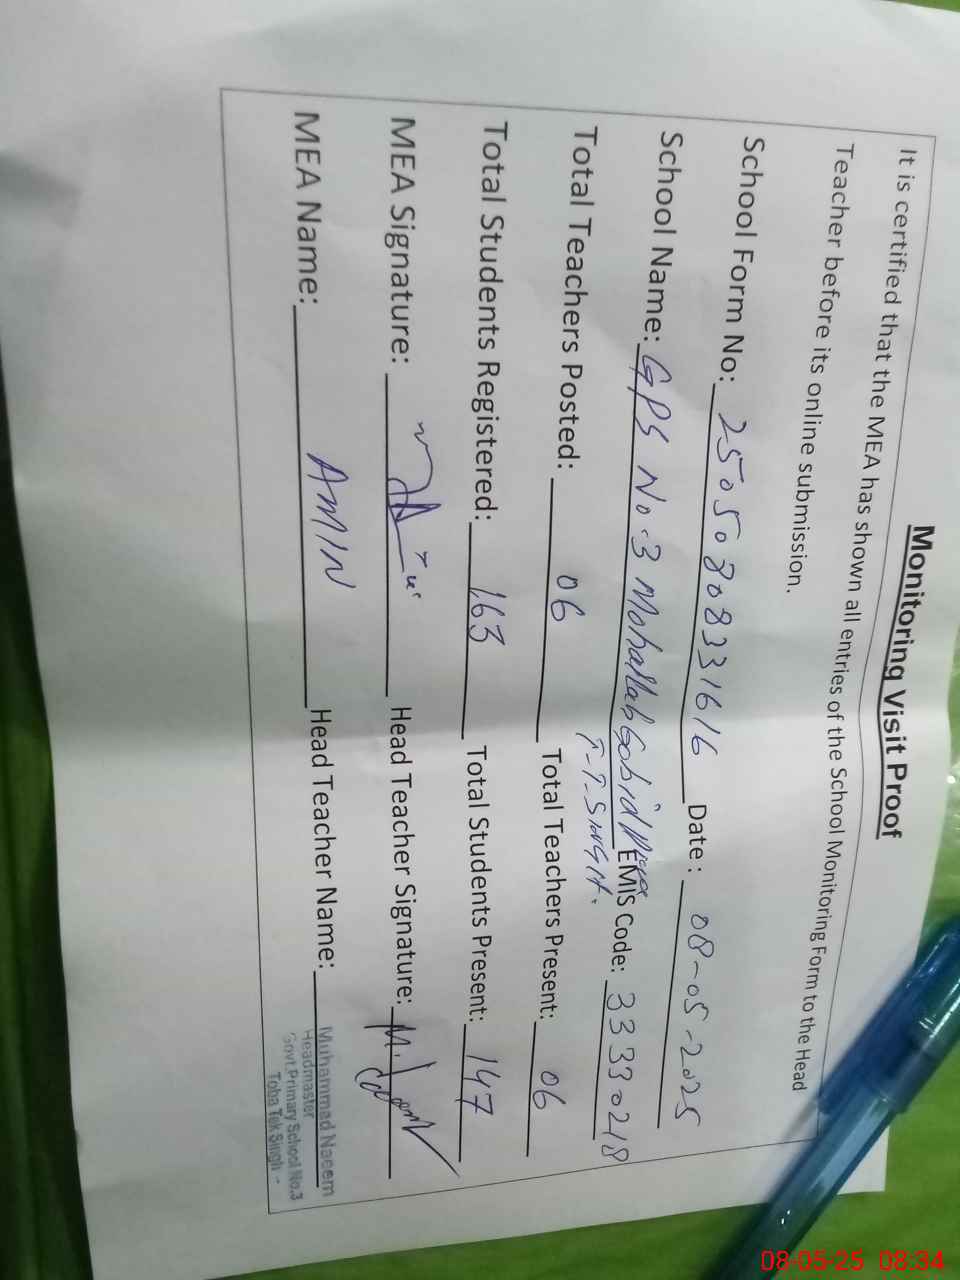 Monitoring Visit Proof
It is certified that the MEA has shown all entries of the School Monitoring Form to the Head
Teacher before its online submission.
School Form No: 25050808331616 Date: 08-05-2025
School Name: GPS No.3 Mohallah Gobind EMIS Code: 33330218
T.T.SINGH.
Total Teachers Posted: 06 Total Teachers Present: 06
Total Students Registered: 163 Total Students Present: 147
MEA Signature: Head Teacher Signature:
MEA Name: AMIN Head Teacher Name: Muhammad Naeem
Headmaster
Govt.Primary School No.3
Toba Tek Singh
08-05-25 08:34